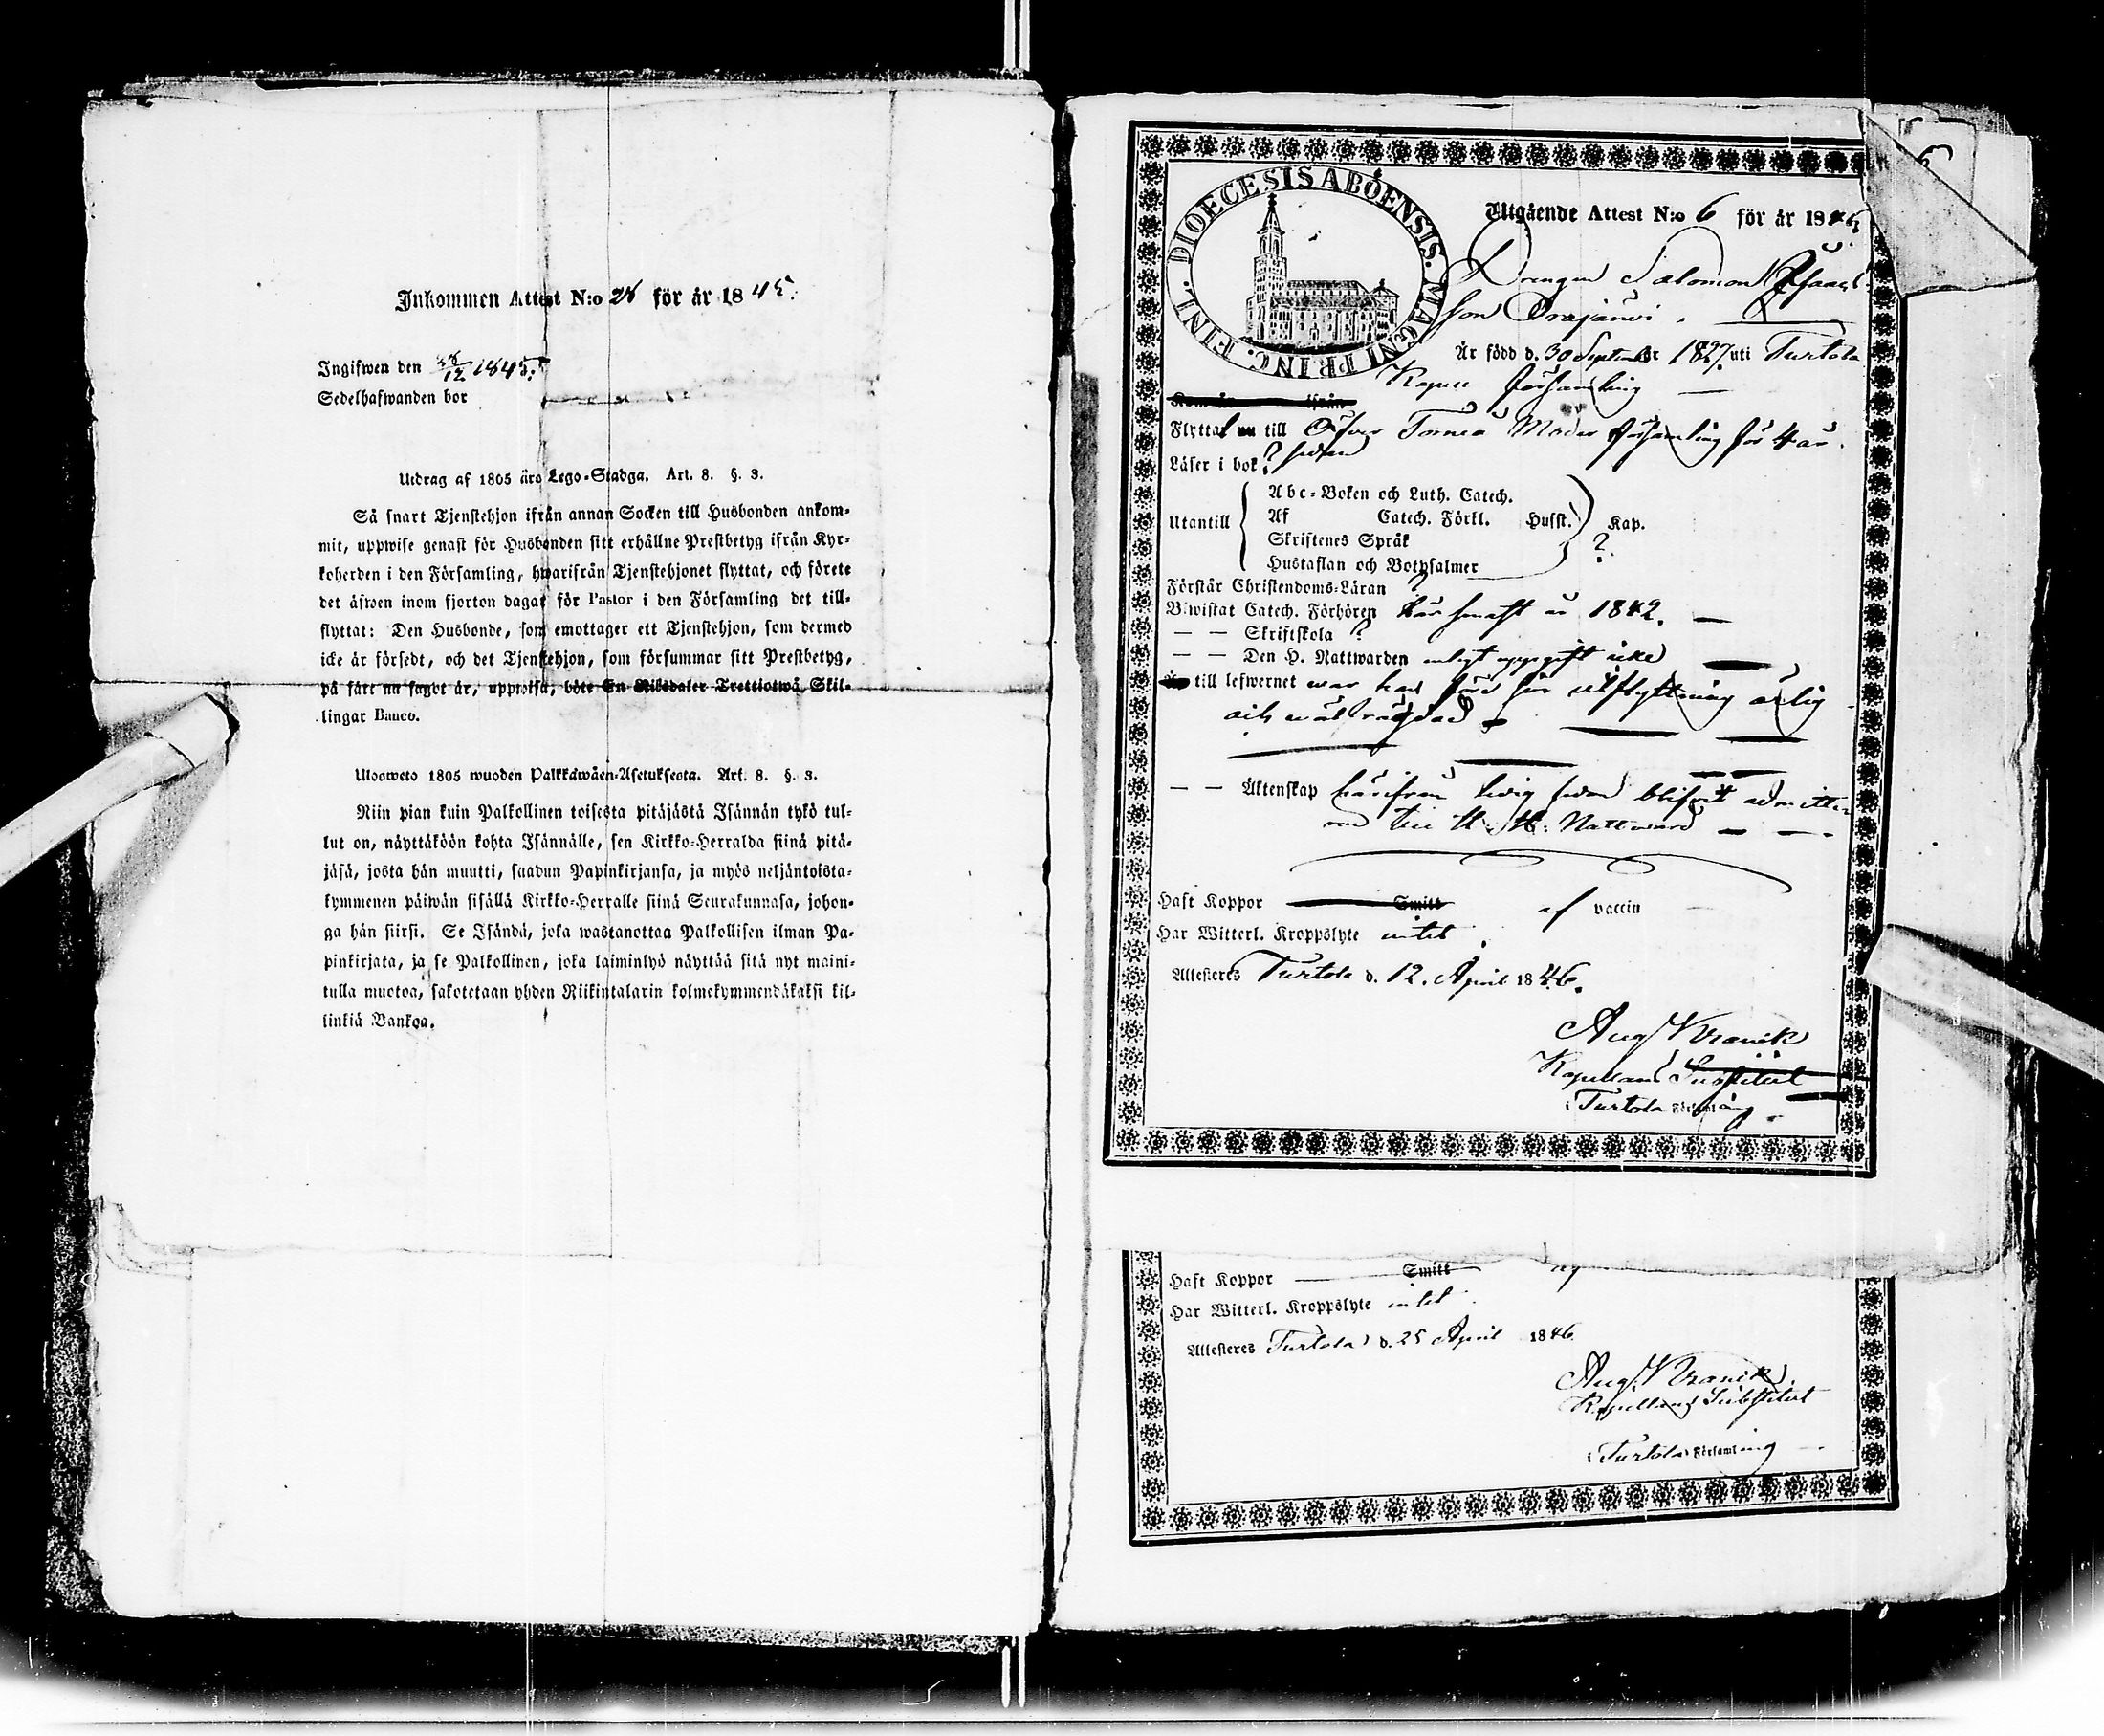 Inkommen Attest N:o 28 för år 1845.
Ingifwen den 28/12 1845.
Sedelhafwanden bor
Utdrag af 1805 åra Lego-Stadga. Art. 8. §. 3.
Så snart Tjenstehjon ifrån annan Socken till Husbonden ankom-
mit, uppwise genast för Husbonden sitt erhållne Prestbetyg ifrån Kyr-
koherden i den Församling, hwarifrån Tjenstehjonet flyttat, och förete
det äfwen inom fjorton dagar för Pastor i den Församling det till-
flyttat: Den Husbonde, som emottager ett Tjenstehjon, som dermed
icke är försedt, och det Tjenstehjon, som försummar sitt Prestbetyg,
på sätt nu sagdt är, uppwisa, böte En Riksdaler Trettiotwå Skil-
lingar Banco.
Ulosweto 1805 wuoden Palkkawäen-Asetuksesta. Art. 8. §. 3.
Niin pian kuin Palkollinen toisesta pitäjästä Isännän tykö tul-
lut on, näyttäköön kohta Isännälle, sen Kirkko-Herralda siinä pitä-
jäsä, josta hän muutti, saadun Papinkirjansa, ja myös neljäntoista-
kymmenen päiwän sisällä Kirkko-Herralle siinä Seurakunnasa, johon-
ga hän siirsi. Se Isändä, joka wastanottaa Palkollisen ilman Pa-
pinkirjata, ja se Palkollinen, joka laiminlyö näyttää sitä nyt maini-
tulla muotoa, sakotetaan yhden Riikintalarin kolmekymmendäkaksi kil-
linkiä Bankoa.
6
DIOECESIS ABOËNSIS. MAGNI PRINC. FINL.
Utgående Attest N:o 6 för år 1846
Drengen Salomon Isaacs
son Orajärwi.
Är född d. 30 September 1827 uti Turtola
Kapell församling
Kom år ifrån
Flyttat till Öfver Torneå Moder församling för 4 år
sedan
Läser i bok ?
Utantill
Abc-Boken och Luth. Catech.
Af Catech. Förkl. Husst. Kap.
Skriftenes Språk ?
Hustaflan och Botpsalmer
Förstår Christendoms-Läran ?
Biwistat Catech. Förhören här senast år 1842.
— — Skriftskola ?
— — Den H. Nattwarden enligt uppgift icke
till lefwernet war här före sin utflyttning ärlig
och wälfrägdad
— — Äktenskap härifrån ledig sedan blifwit admitte-
rad till H. H. Nattward
Haft Koppor Smitt af vaccin
Har Witterl. Kroppslyte intet
Attesteres Turtola d. 12. April 1846.
Aug Kranck
Kapellans Substitut
i Turtola Församling.
Haft Koppor Smitt
Har Witterl. Kroppslyte intet
Attesteres Turtola d. 25 April 1846
Aug. Kranck
Kapellans Substitut
i Turtola Församling